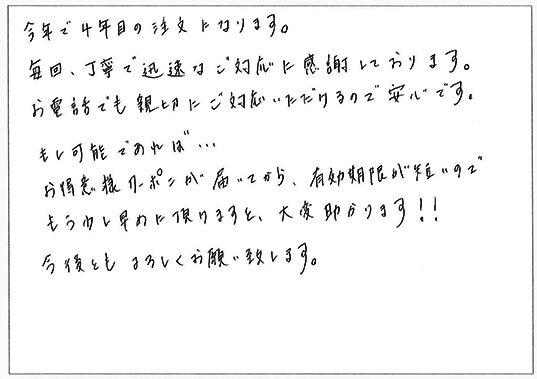 今年で4年目の注文になります。
毎回、丁寧で迅速なご対応に感謝しております。
お電話でも親切にご対応いただけるので安心です。
もし可能であれば…
お得意様クーポンが届いてから、有効期限が短いので
もう少し早めに頂けますと、大変助かります!!
今後ともよろしくお願い致します。